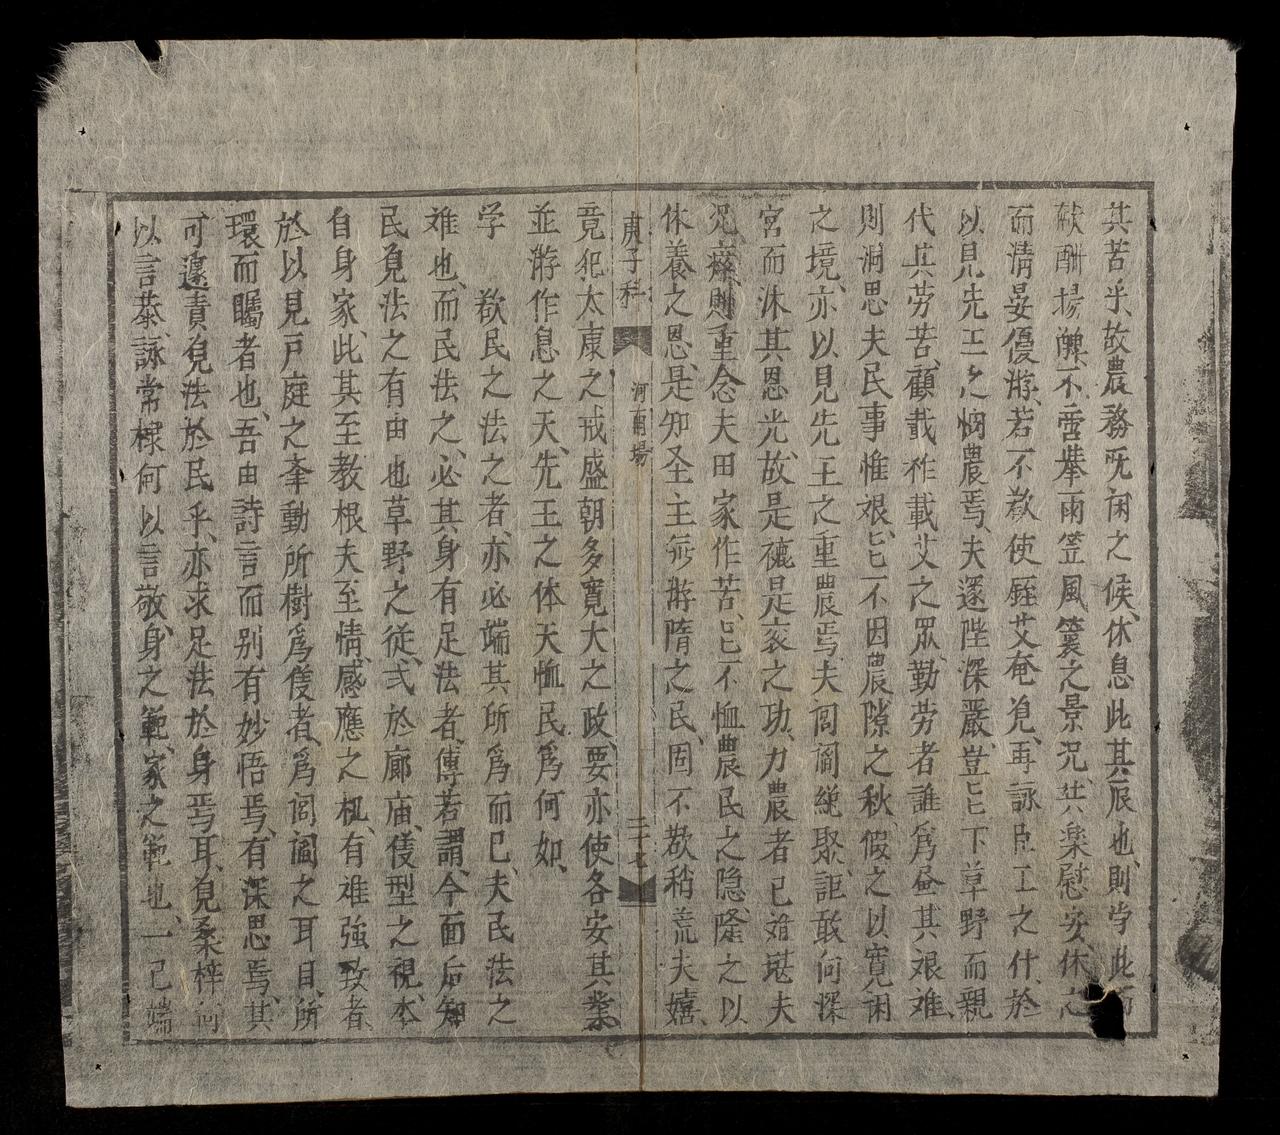 其苦乎、故農務旣闲之候、休息此其辰也、則当此而
歌酬揚醜、不啻犖雨笠風簑之景况、共楽慰安、休之
而清晏優游、若不敎使耋艾奄覓、再詠臣工之什、於
以見先王之憫農焉、夫邃陛深嚴、豈匕匕下草野而親
代其劳苦、顧載柞載艾之眾、勤劳者誰爲昼其艰难、
則洞思夫民事惟艰、匕匕不因農隙之秋、假之以寛闲
之境、亦以見先王之重農焉、夫闾阎綂聚、詎敢向深
宮而沐其恩光、故是穮是蓘之功、力農者已难堪夫
况瘁、則重念夫田家作苦、匕匕不恤農民之隐、隆之以
休養之恩、是知圣主無游隋之民、固不敎稍荒夫嬉、
庚子科 河南場 三十七
竟犯太康之戒、盛朝多寛大之政、要亦使各安其業
並游作息之天、先王之体天恤民爲何如、
学 欲民之法之者、亦必端其所爲而已、夫民法之
难也、而民法之、必其身有足法者、傳若謂、今面后知
民覓法之有由也、草野之従、式於廊庙、隻型之視、本
自身家、此其至教根夫至情、感應之机、有难強致者
於以見戸庭之夆動所樹爲隻者、爲闾阎之耳目、所
環而矚者也、吾由詩言而别有妙悟焉、有深思焉、其
可遽責覓法於民乎、亦求足法於身焉耳、覓桑梓何
以言恭、詠常棣何以言敬、身之範、家之範也、一己端